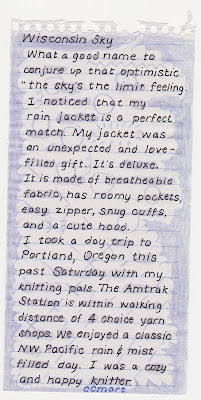 Wisconsin Sky
What a good name to
conjure up that optimistic
"the sky's the limit feeling.
I noticed that my
rain jacket is a perfect
match. My jacket was
an unexpected and love-
filled gift. It's deluxe.
It is made of breatheable
fabric, has roomy pockets,
easy zipper, snug cuffs,
and a cute hood.
I took a day trip to
Portland, Oregon this
past Saturday with my
knitting pals. The Amtrak
Station is within walking
distance of 4 choice yarn
shops. We enjoyed a classic
NW Pacific rain & mist
filled day. I was a cozy
and happy knitter.
ccmart